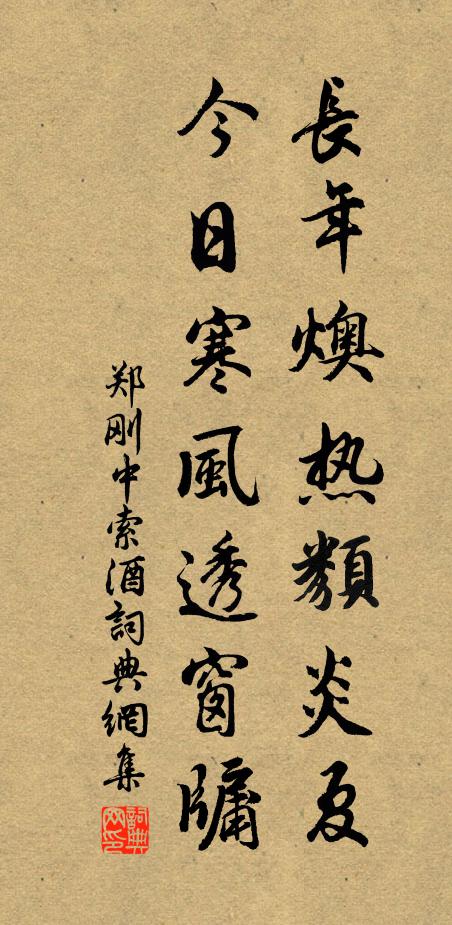 長年燠热類炎夏
今日寒風透窗牖
郑刚中索酒詞典網集
詞典
网印